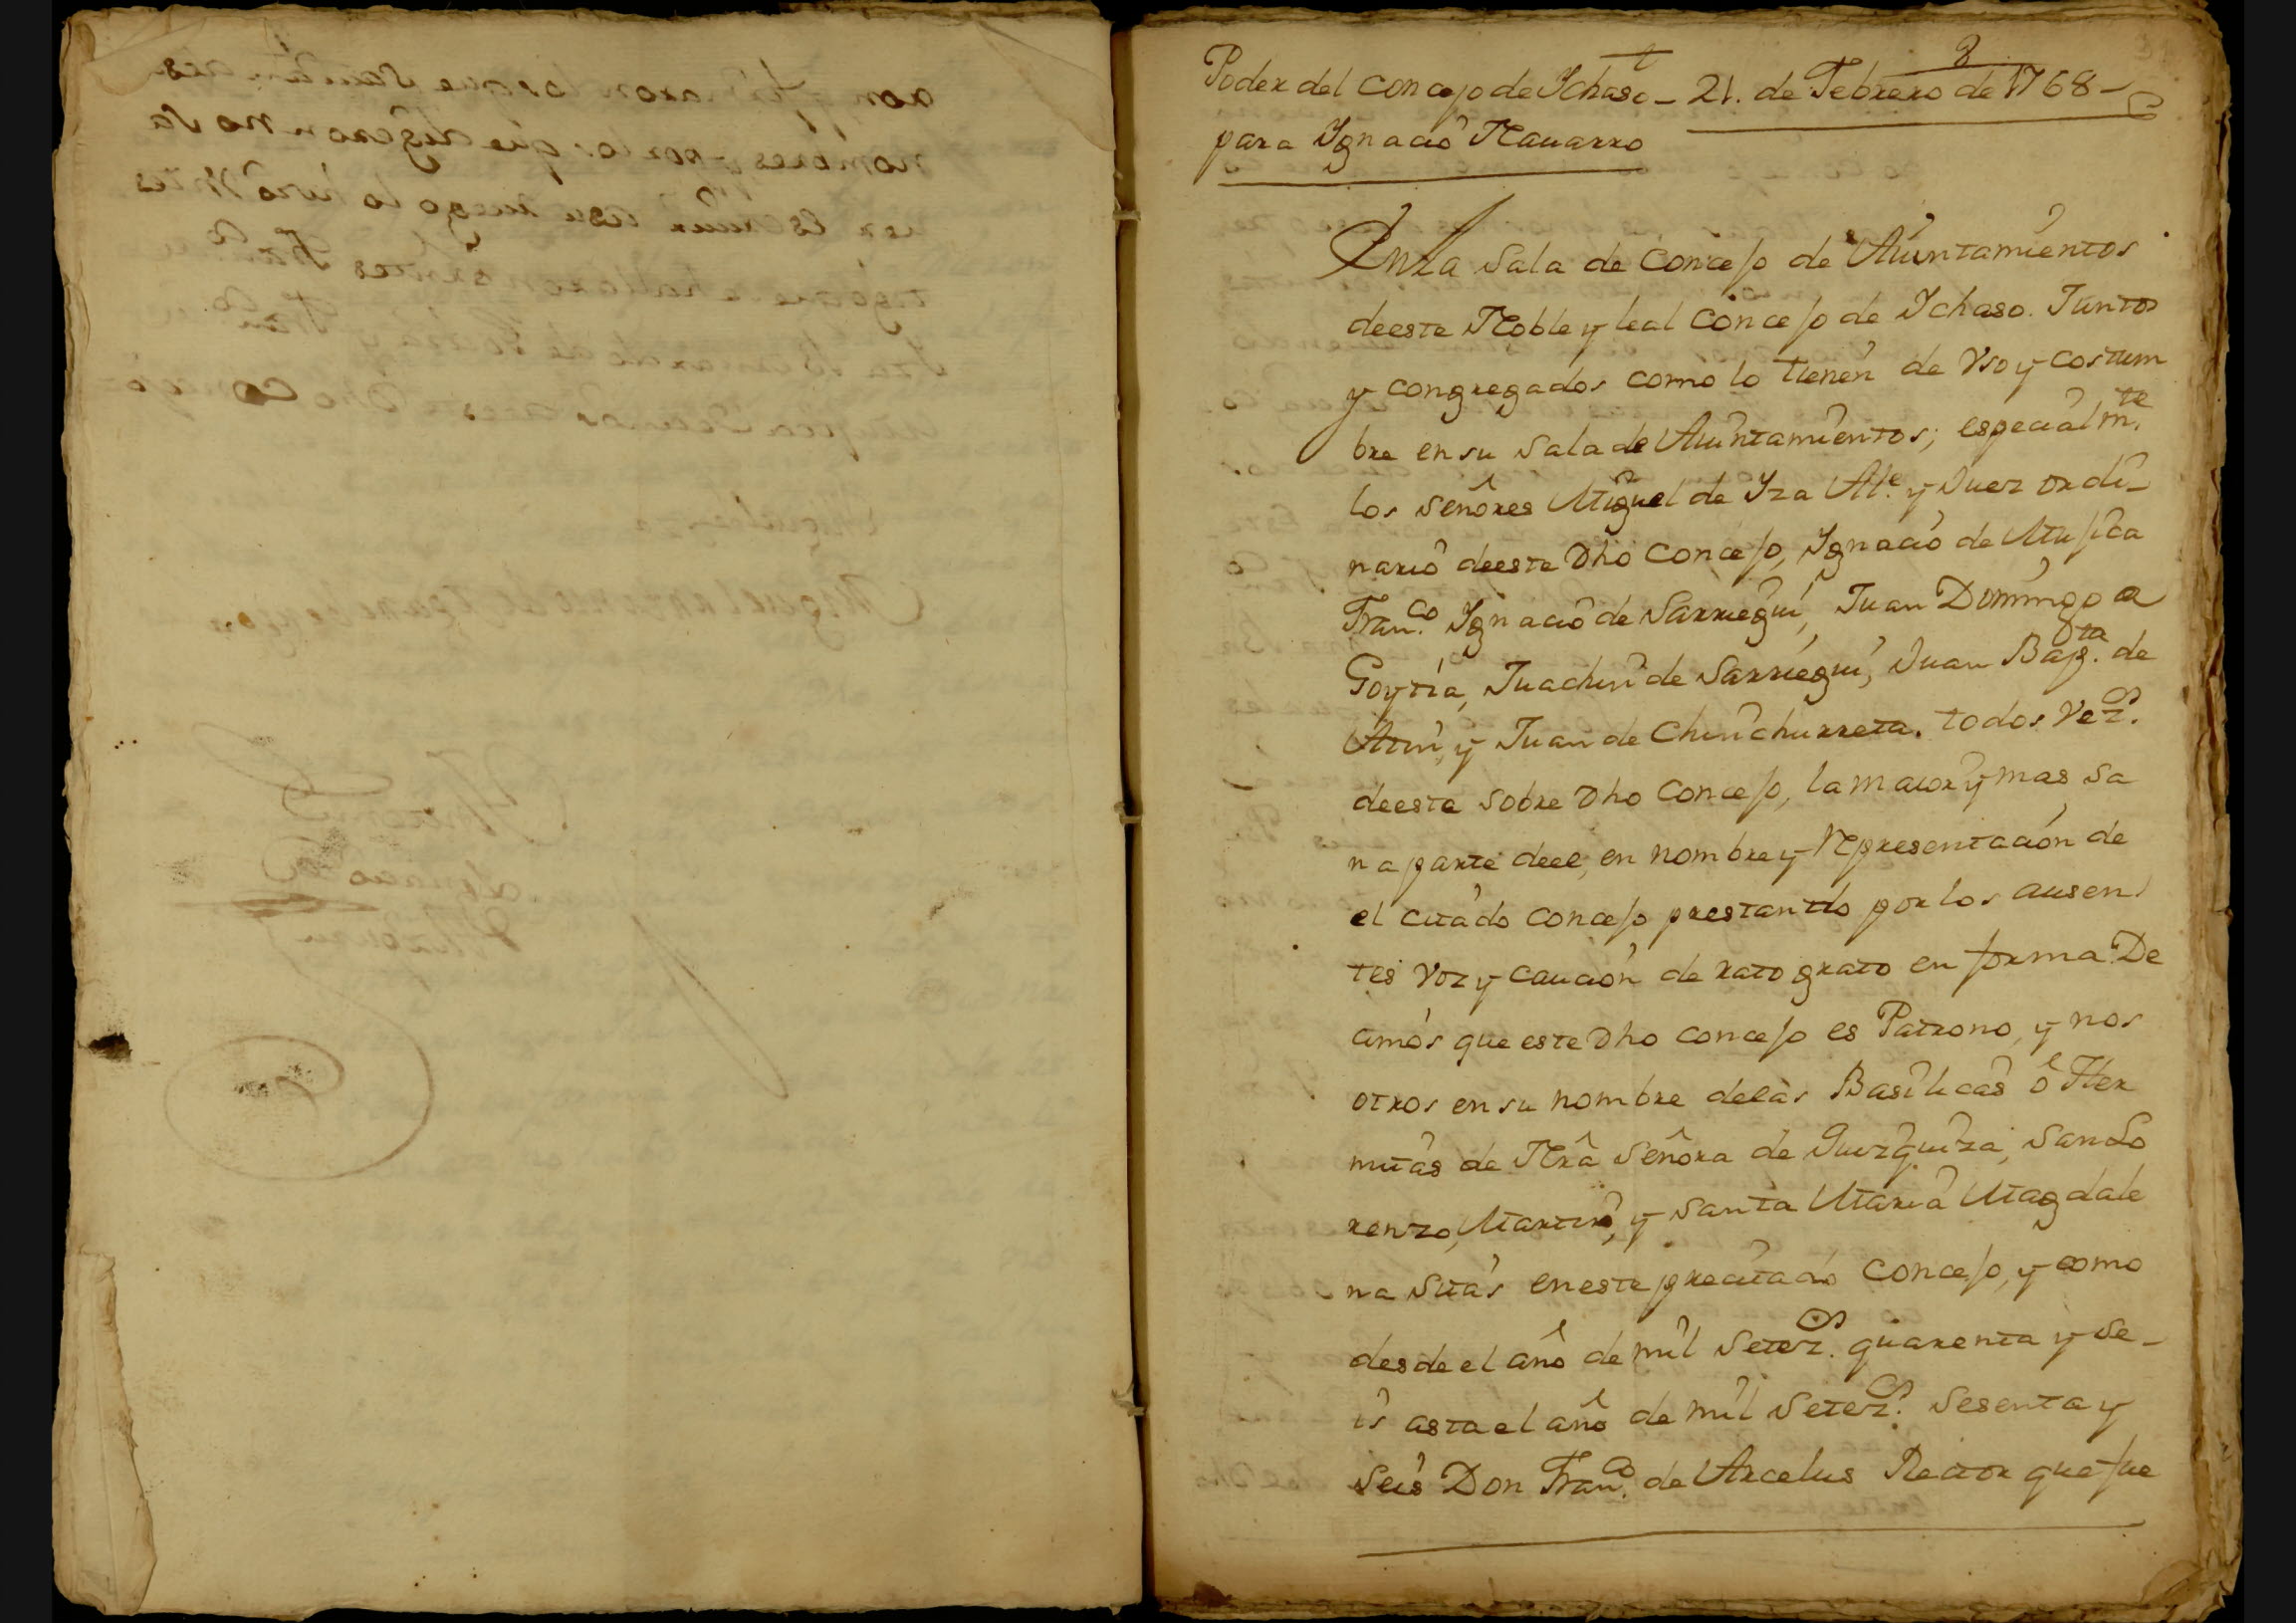 8
Poder del Concejo de Ychaso - 21. de Febrero de 1768 -
para Ygnacio Nauarro
En la Sala de Concejo de Aiuntamientos
deeste Noble y leal Concejo de Ychaso. Juntos
y congregados como lo tienen de Vso y costum
bre en su Sala de Aiuntamientos; especialmte.
los Señores Miguel de Yza Alce. y Juez ordi-
nario deeste Dho Concejo, Ygnacio de Mujica
Franco. Ygnacio de Sarriegui, Juan Domingo a
Goytia, Juachin de Sarriegui, Juan Bapta. de
y Juan de Chinchurreta. todos Vezos.
deeste Sobre Dho Concejo, la maior y mas Sa
na parte deel, en nombre y Representacion de
el citado Concejo prestando por los ausen
tes Voz y caucion de rato grato en forma De
cimos que este Dho Concejo es Patrono, y nos
otros en su nombre delas Basilicas ô Her
mitas de Nrâ Señora de Guizquiza, San Lo
renzo, Martir, y Santa Maria Magdale
na Sitas eneste precitado Concejo, y como
desde el año de mil Setezos. quarenta y Se-
is asta el año de mil Setezos. Sesenta y
Seis Don Franco. de Arcelus Rector que fue